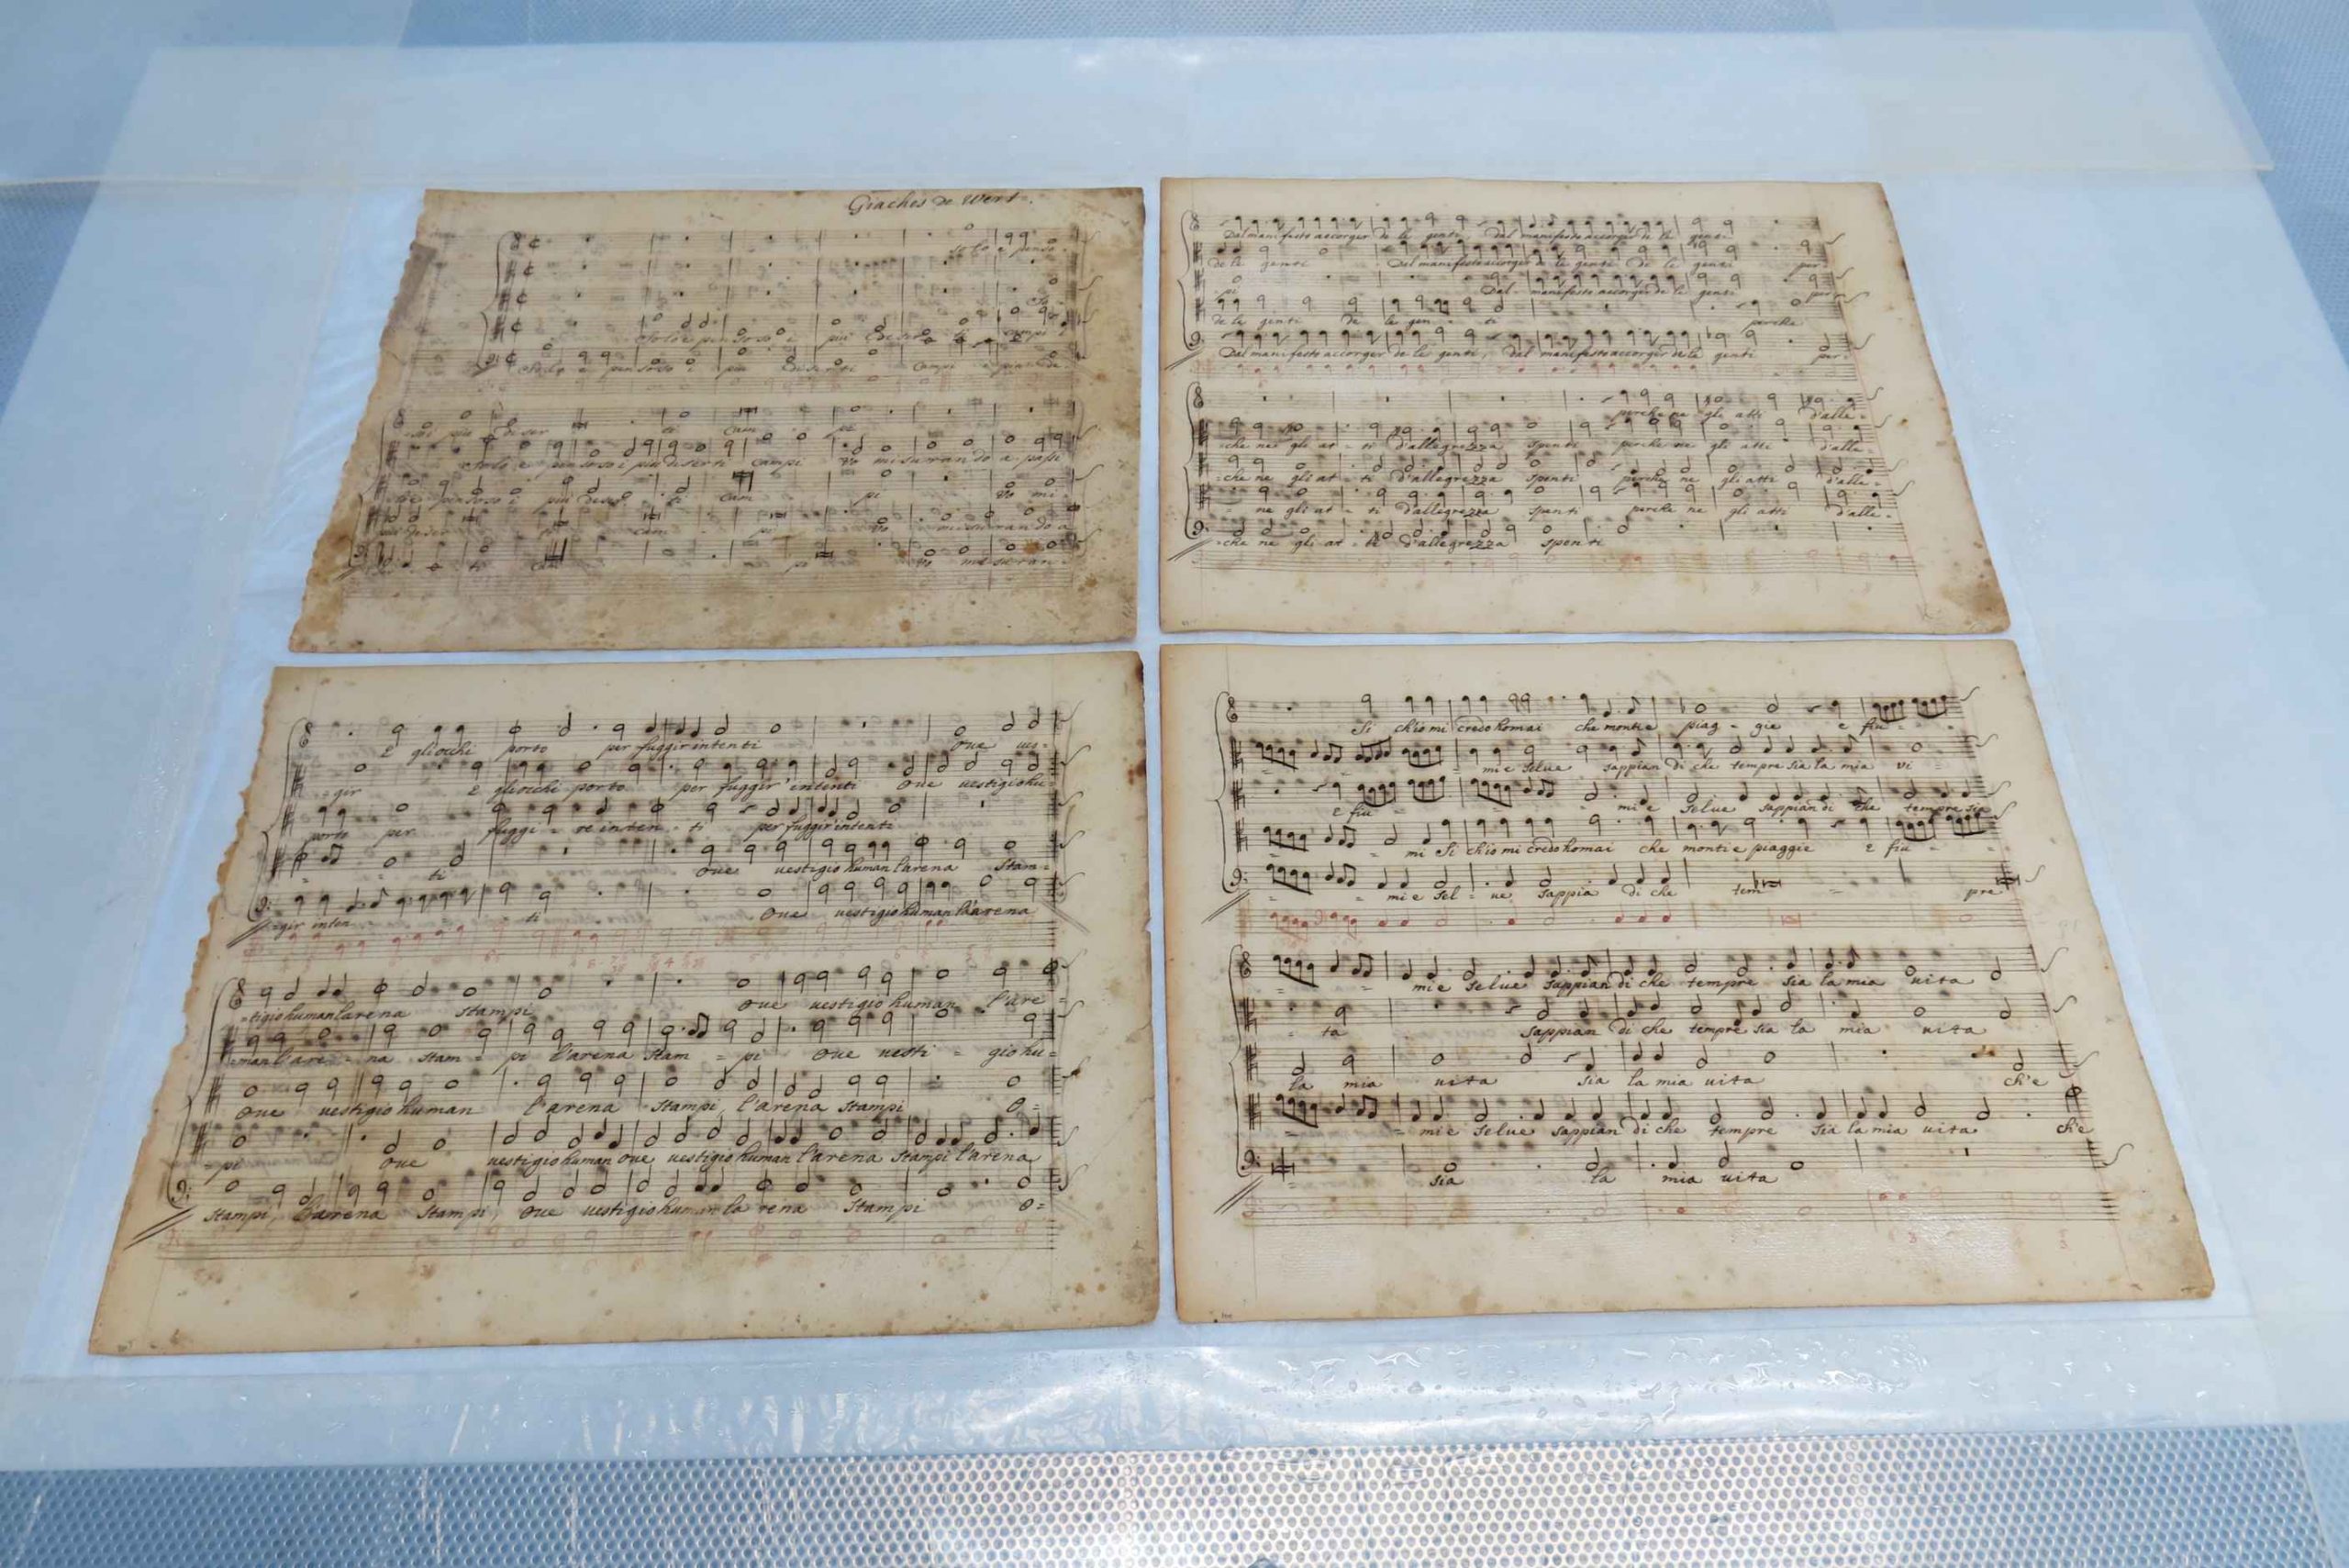 Giaches de Wert.
Solo e penso-
So-
Solo e pensoso i più deserti campi
Solo e pensoso i più deserti campi e più de-
-soi più deser ti cam pi
Solo e pensoso i più diserti campi vo misurando a passi
pensoso i più deser ti cam pi vo mi-
più deser ti cam pi vo misurando a
ti cam pi vo misuran-
Dal manifesto accorger de le genti Dal manifesto accorger de le genti
de le genti Dal manifesto accorger de le genti de le genti per-
-pi Dal manifesto accorger de le genti per-
de le genti de le gen - ti perche
Dal manifesto accorger de le genti, Dal manifesto accorger de le genti per-
perche ne gli atti d'alle-
-che ne gli at - ti d'allegrezza spenti perche ne gli atti d'alle-
-che ne gli at - ti d'allegrezza spenti perche ne gli atti d'alle-
- ne gli at - ti d'allegrezza spenti perche ne gli atti d'alle-
-che ne gli at - ti d'allegrezza spenti
E gliocchi porto per fuggir intenti Oue ues-
-gir E gliocchi porto per fuggir' intenti Oue uestigio hu-
porto per fuggi - re inten - ti per fuggir' intenti
- - ti Oue uestigio human l'arena Stam=
=gir inten ti Oue uestigio human l'arena
=tigio human l'arena stampi oue uestigio human l'are=
=man l'are - na stam = pi l'arena stam = pi oue uesti = gio hu=
Oue uestigio human l'arena stampi, l'arena stampi O=
=pi Oue uestigio human oue uestigio human l'arena stampi l'arena
stampi, l'arena stampi, oue uestigio human la rena stampi O=
Si ch'io mi credo homai che monti e piag - gie e fiu -
= = mi e selue sappian di che tempre sia la mia vi -
E fiu = mi e selue sappian di che tempre sia
= = mi Si ch'io mi credo homai che monti e piaggie E fiu -
= = mi e sel = ue sappia di che tem = pre
= = mi e selue sappian di che tempre sia la mia uita
= ta sappian di che tempre sia la mia uita
la mia uita sia la mia uita ch'e
= = mi e selue sappian di che tempre sia la mia uita ch'e
= sia la mia uita